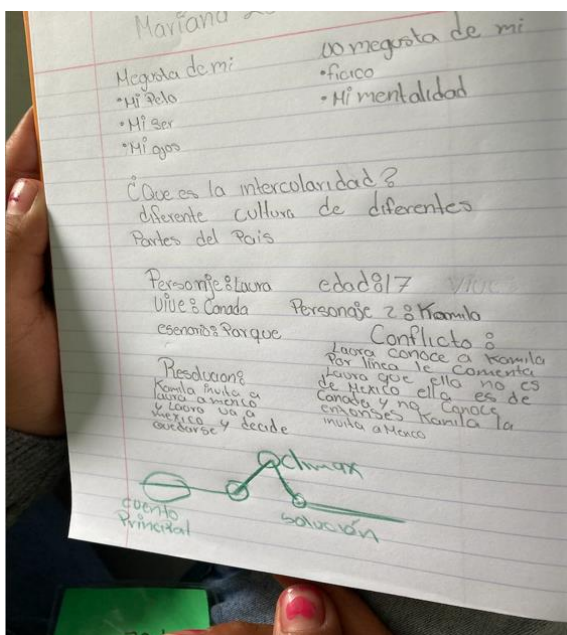 Mariana
Megusta de mi
• Mi Pelo
• Mi ser
• Mi ojos
no megusta de mi
• ficico
• Mi mentalidad
¿Que es la intercolaridad?
diferente cultura de diferentes
Partes del Pais
Personje: Laura edad: 17 Vive
Vive: Canada Personaje 2: Kamila
esenario: Parque
Conflicto:
Laura conoce a Kamila
Por linea le comenta
Laura que ella no es
de Mexico ella es de
Canada y no Conoce
entonses Kamila la
invita a Mexico
Resolucion:
Kamila invita a
laura a mexico
y Laura va a
mexico y decide
quedarse
climax
cuento
Principal
solución